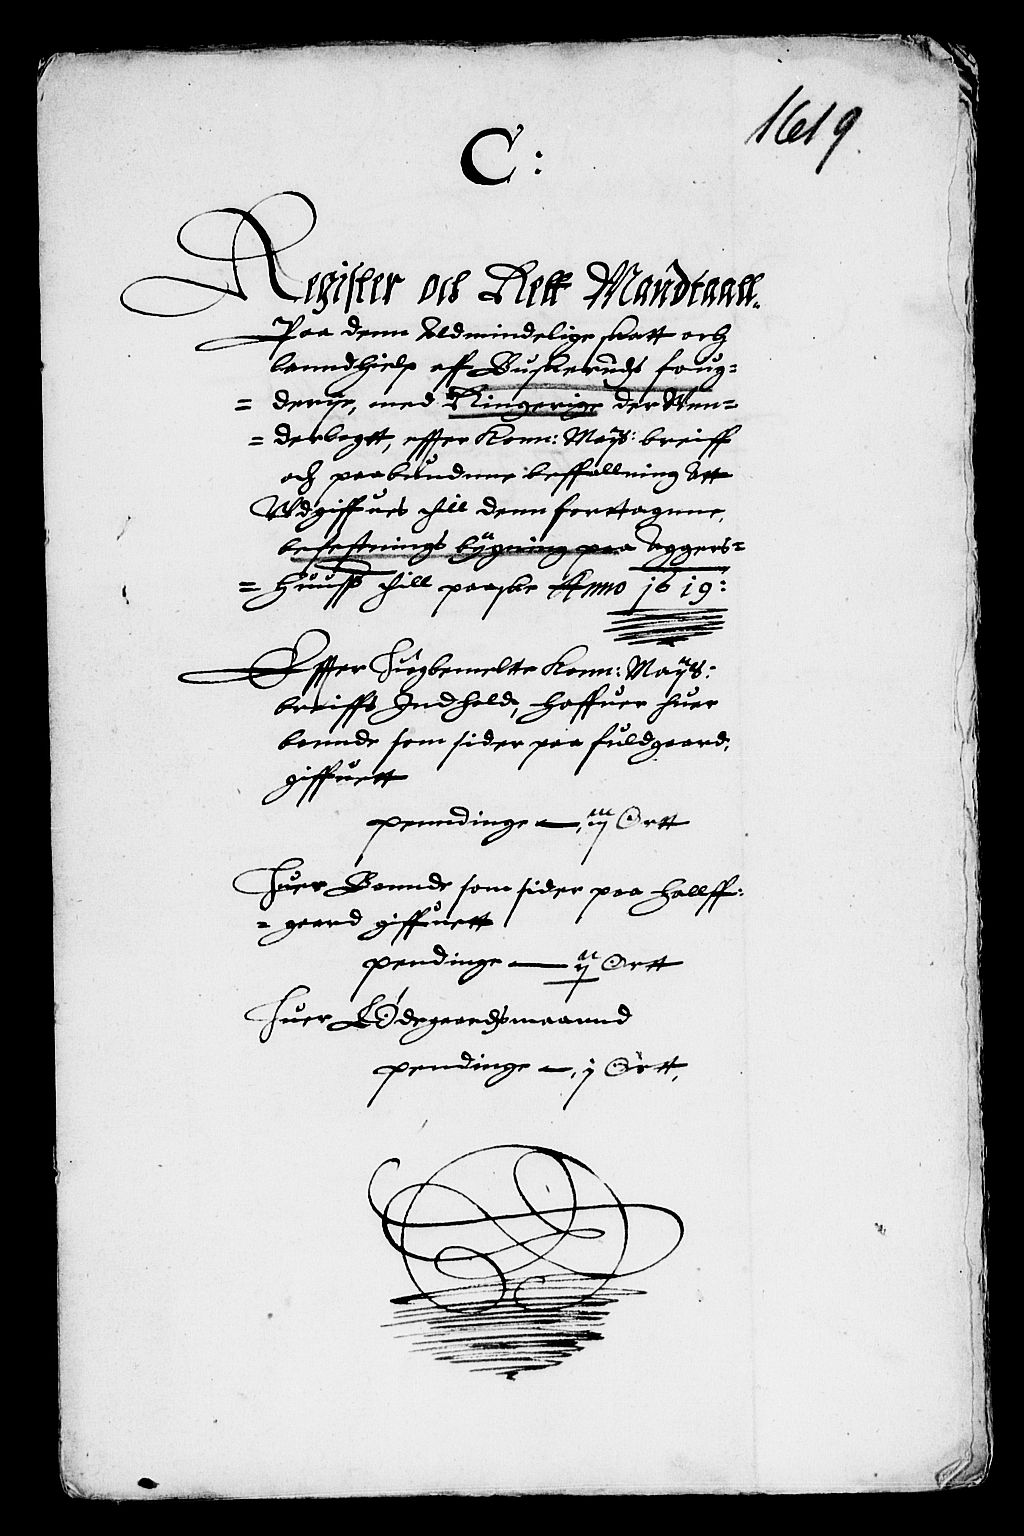 1619
C:
Register och Rett Mandtaall.
Paa denn Aldmindelige skatt och
lanndhielp aff Buskeruds foug-
= derye, med Ringerige der Wen-
= derlagtt, effter Konn: Mayß: breiff
och paabudne beffallning Att
Vdgiffues thill denn forttagnne,
befestnings bÿgning paa Aggers-
= huuß thill paaske Anno 1619:
Effter høgbemeltte Konn: Mayß:
breiffs Indhold, haffuer huer
bonnde som sider paa fuldgaard,
giffuett
penndinge — iij Ortt
Huer Bonnde som sider paa hallff-
= gaard giffuett
pendinge — ij Ortt
Huer Ødegaardsmaannd
pendinge — j Ortt,